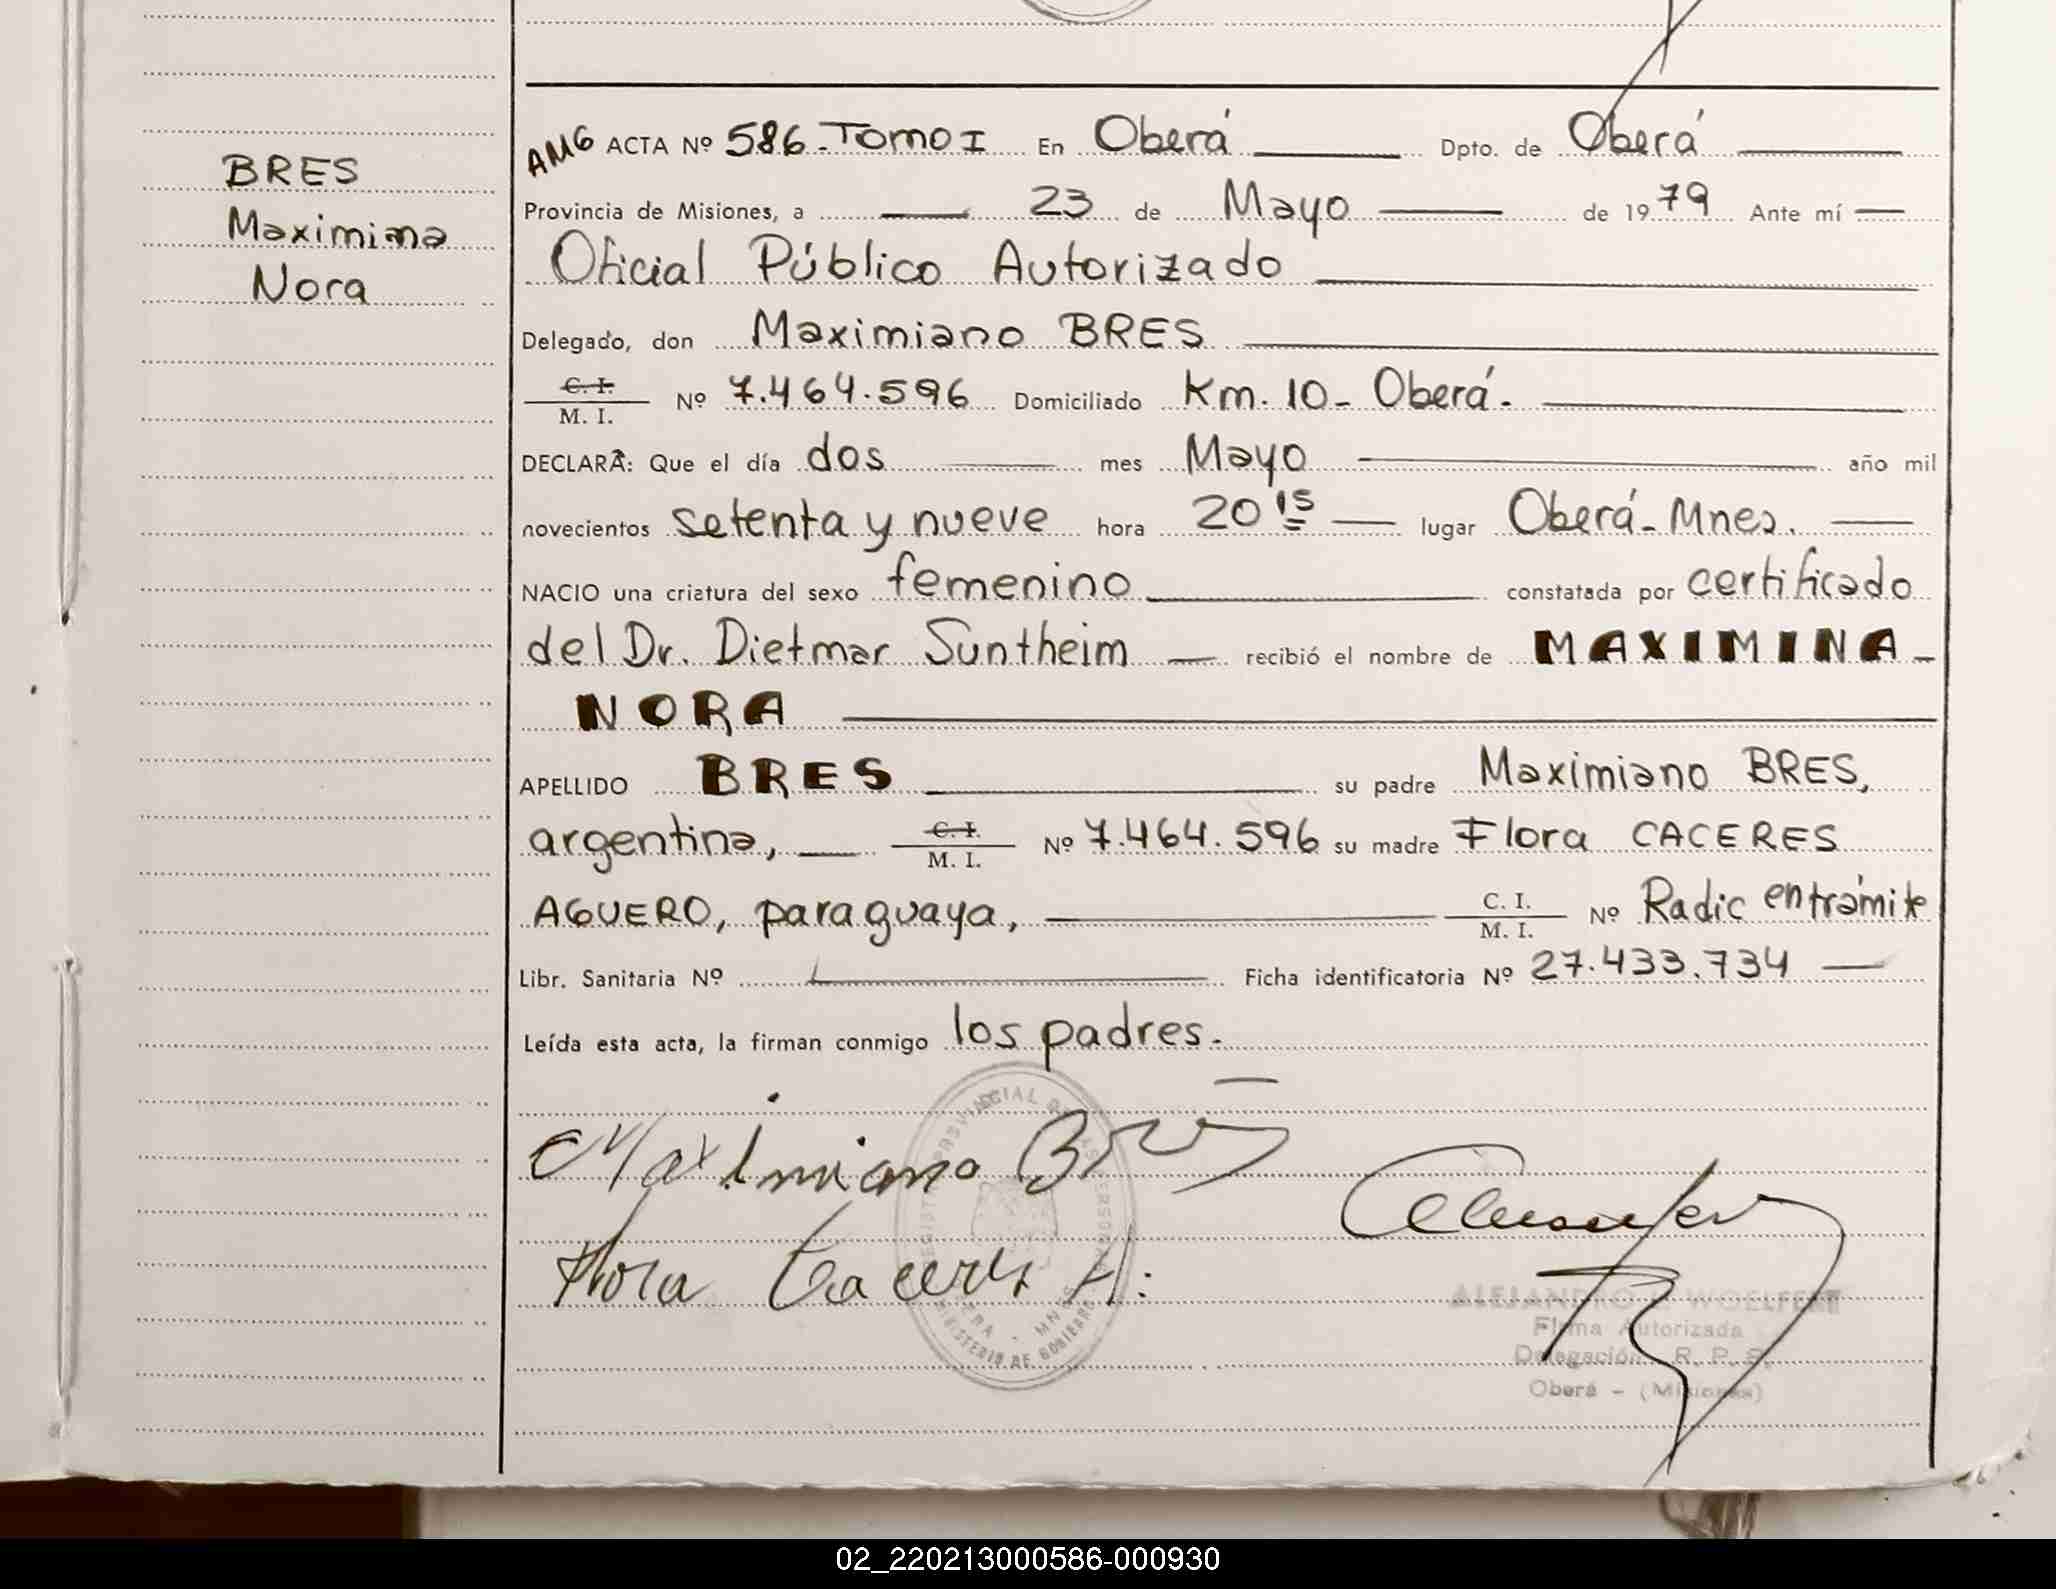 BRES
Maximina
Nora
AMG ACTA Nº 586-TOMO I En Oberá Dpto. de Oberá
Provincia de Misiones, a 23 de Mayo de 1979 Ante mí
Oficial Público Autorizado
Delegado, don Maximiano BRES
C. I.
M. I. Nº 7.464.596 Domiciliado Km. 10 - Oberá.
DECLARA: Que el día dos mes Mayo año mil
novecientos setenta y nueve hora 20 15 lugar Oberá - Mnes.
NACIO una criatura del sexo femenino constatada por certificado
del Dr. Dietmar Suntheim recibió el nombre de MAXIMINA
NORA
APELLIDO BRES su padre Maximiano BRES,
argentina, C. I.
M. I. Nº 7.464.596 su madre Flora CACERES
AGUERO, paraguaya, C. I.
M. I. Nº Radic en trámite
Libr. Sanitaria Nº Ficha identificatoria Nº 27.433.734
Leída esta acta, la firman conmigo los padres.
Maximiano Bres
Flora Caceres A.
REGISTRO PROVINCIAL DE LAS PERSONAS
OBERA - MNES
MINISTERIO DE GOBIERNO
ALEJANDRO WOELFERT
Firma Autorizada
Delegación R. P. P.
Oberá - (Misiones)
02_220213000586-000930